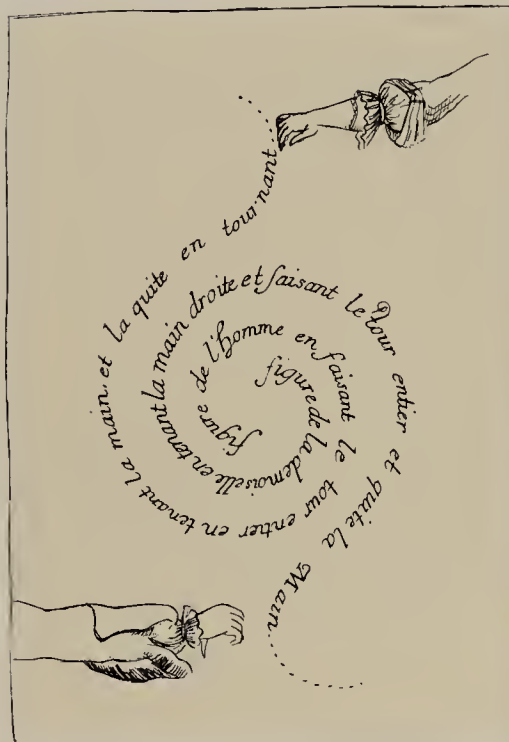 figure de l'homme en faisant le tour entier en tenant la main, et la quite en tour.nant
figure de la demoiselle en tenant la main droite et faisant le Tour entier et quite la Main.